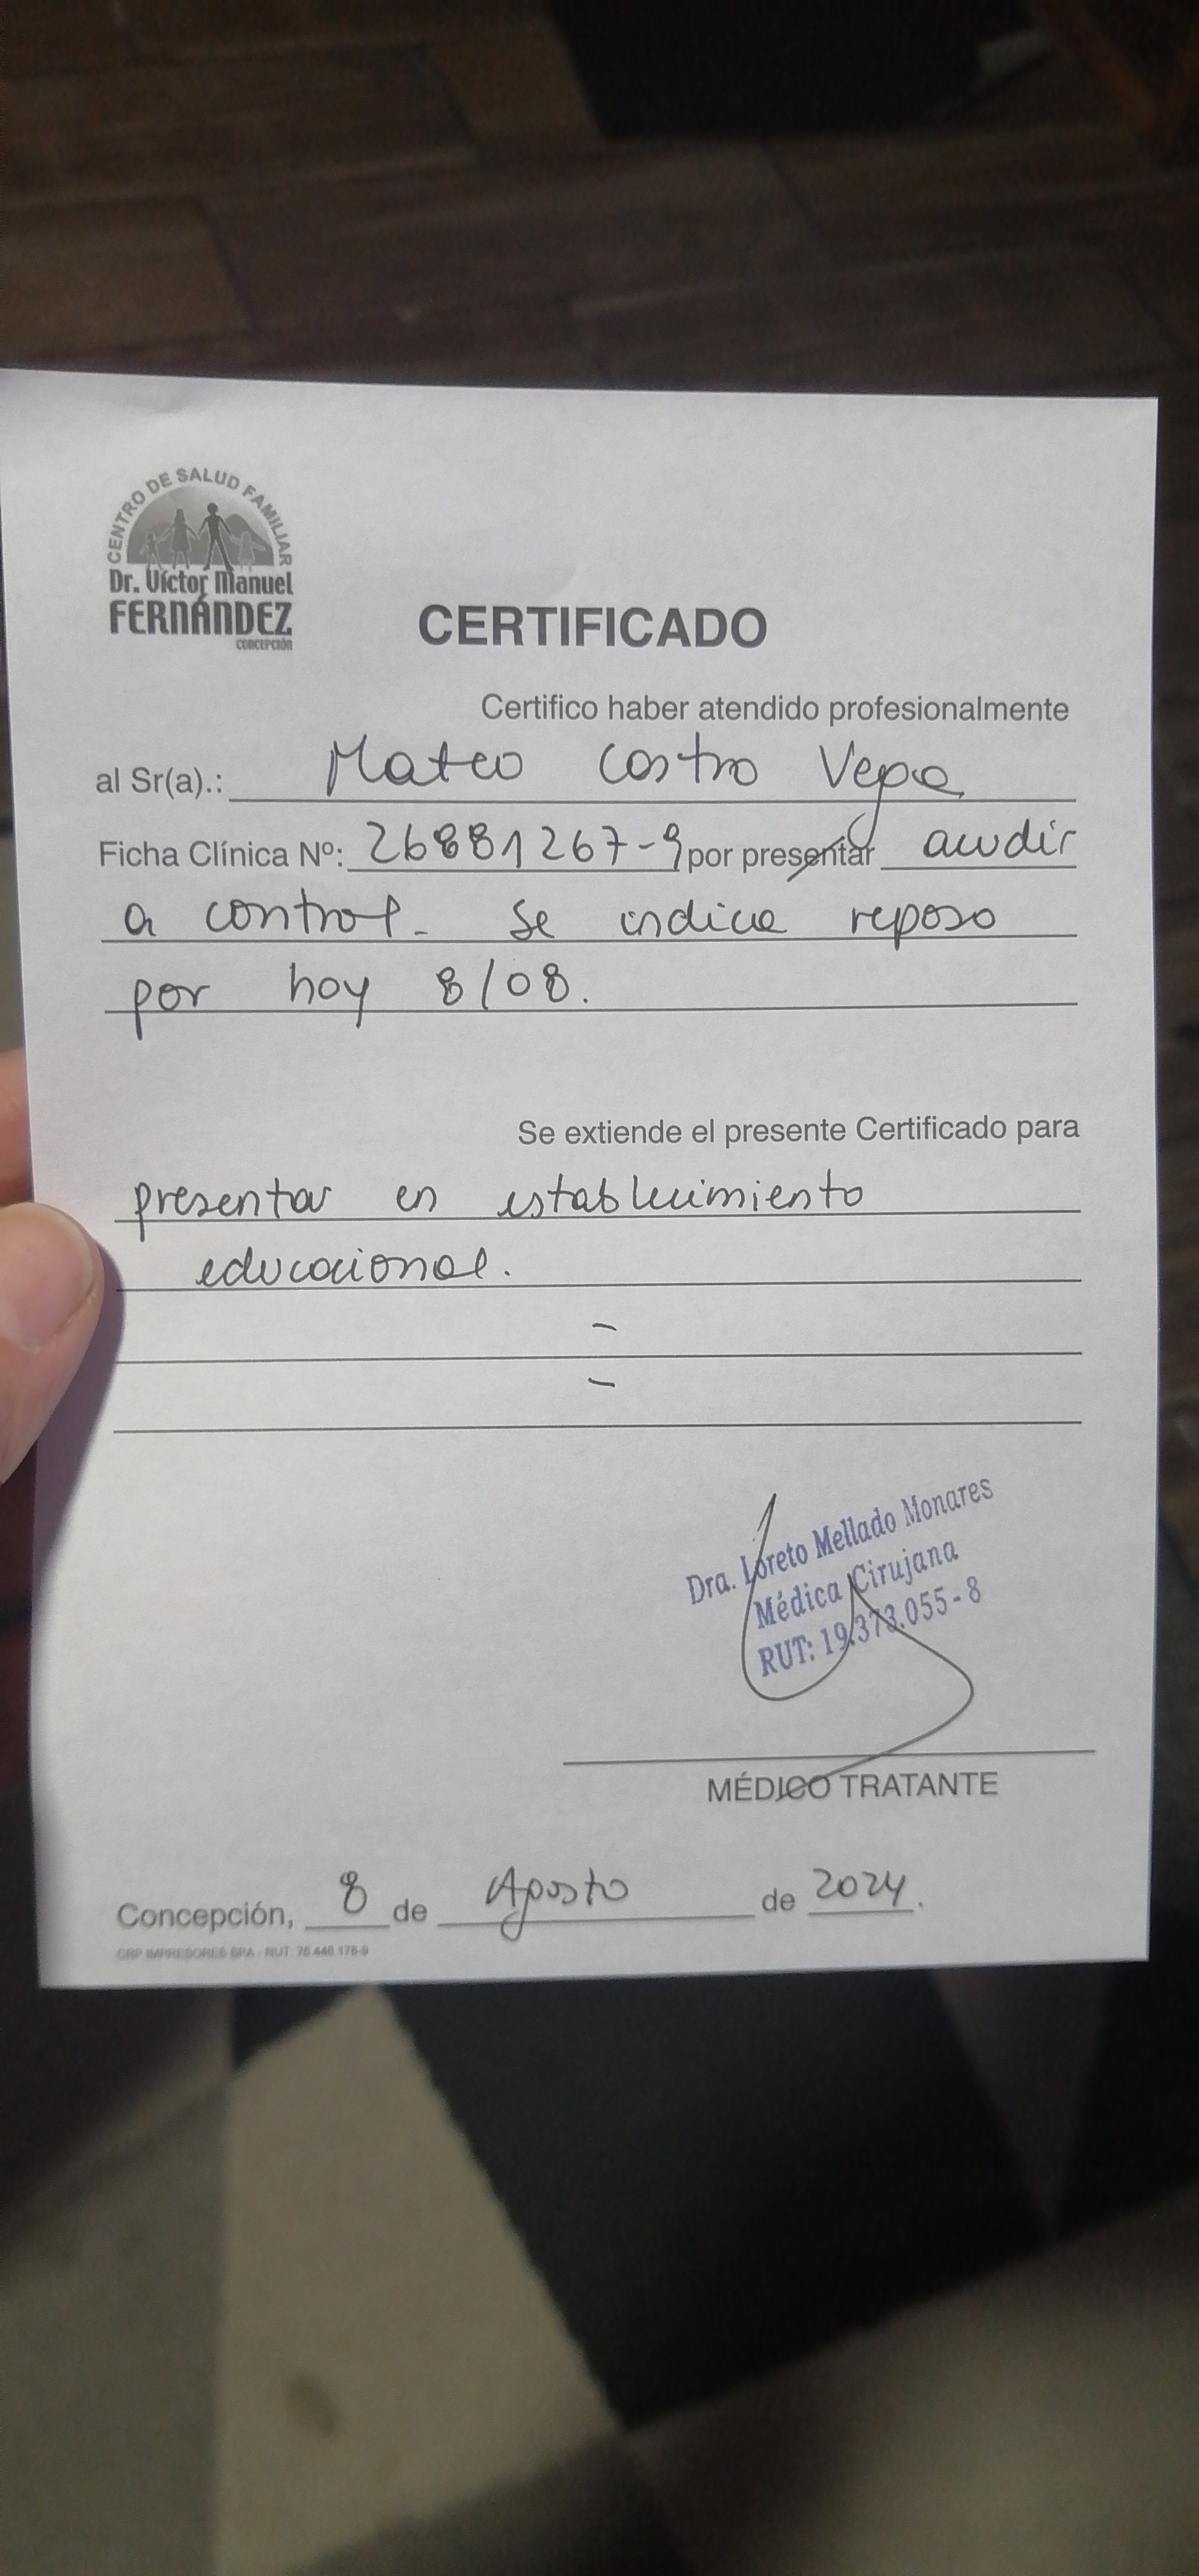 CENTRO DE SALUD FAMILIAR
Dr. Víctor Manuel
FERNÁNDEZ
CONCEPCIÓN
CERTIFICADO
Certifico haber atendido profesionalmente
al Sr(a).: Mateo Castro Vega
Ficha Clínica Nº: 26881267-9 por presentar acudir
a control. Se indica reposo
por hoy 8/08.
Se extiende el presente Certificado para
presentar en establecimiento
educacional.
-
-
Dra. Loreto Mellado Monares
Médica Cirujana
RUT: 19.373.055-8
MÉDICO TRATANTE
Concepción, 8 de Agosto de 2024.
CRP IMPRESORES SPA - RUT: 76.446.176-9